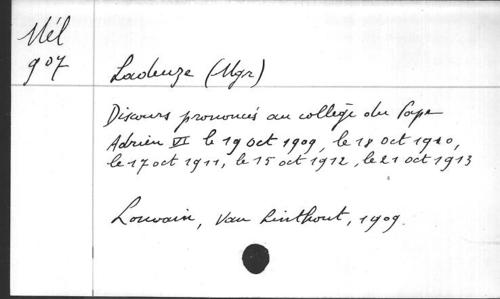 Mél
907
Ladeuze (Mgr)
Discours prononcés au collège du Pape
Adrien VI le 19 oct 1909, le 18 oct 1910,
le 17 oct 1911, le 15 oct 1912, le 21 oct 1913
Louvain, Van Linthout, 1909.